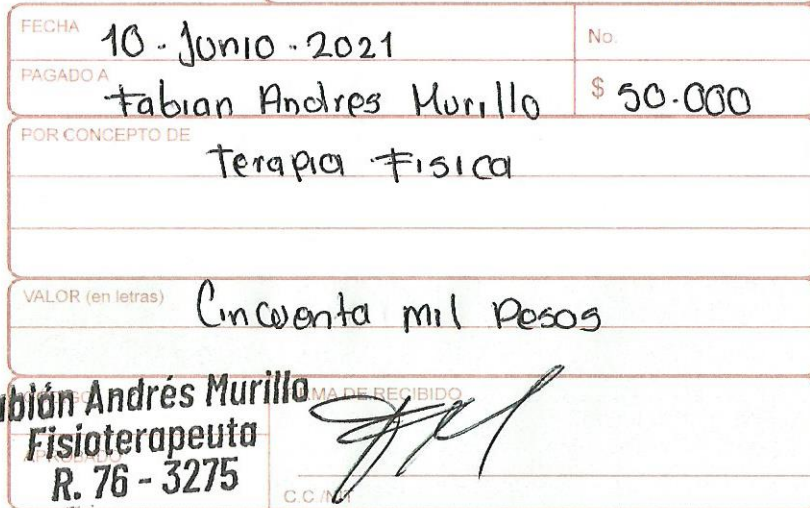 FECHA 10 - Junio - 2021 No.
PAGADO A Fabian Andres Murillo $ 50.000
POR CONCEPTO DE Terapia Fisica
VALOR (en letras) Cincuenta mil Pesos
bián Andrés Murillo FIRMA DE RECIBIDO
Fisioterapeuta
APROBADO
R. 76 - 3275
C.C./NIT